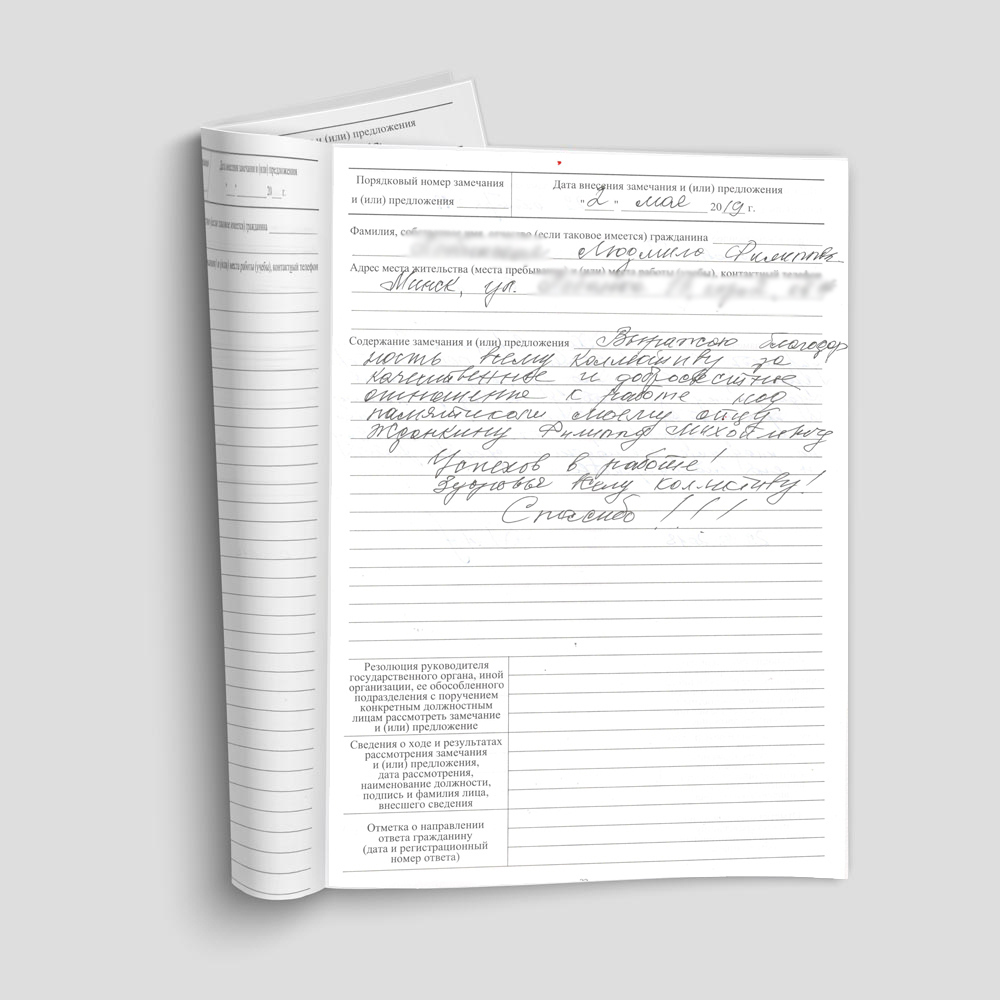 и (или) предложения
Дата внесения замечания и (или) предложения
"___" ______ 20__ г.
(если таковое имеется) гражданина
) места работы (учебы), контактный телефон
Порядковый номер замечания
и (или) предложения
Дата внесения замечания и (или) предложения
"2" мая 2019 г.
Фамилия, собственное имя, отчество (если таковое имеется) гражданина
Людмила Филипповна
Адрес места жительства (места пребывания) и (или) места работы (учебы), контактный телефон
Минск, ул.
Содержание замечания и (или) предложения Выражаю благодар
ность всему коллективу за
качественное и добросовестное
отношение к работе над
памятником моему отцу
Жданкину Филиппу Михайловичу
Успехов в работе!
Здоровья всему коллективу!
Спасибо!!!
Резолюция руководителя
государственного органа, иной
организации, ее обособленного
подразделения с поручением
конкретным должностным
лицам рассмотреть замечание
и (или) предложение
Сведения о ходе и результатах
рассмотрения замечания
и (или) предложения,
дата рассмотрения,
наименование должности,
подпись и фамилия лица,
внесшего сведения
Отметка о направлении
ответа гражданину
(дата и регистрационный
номер ответа)